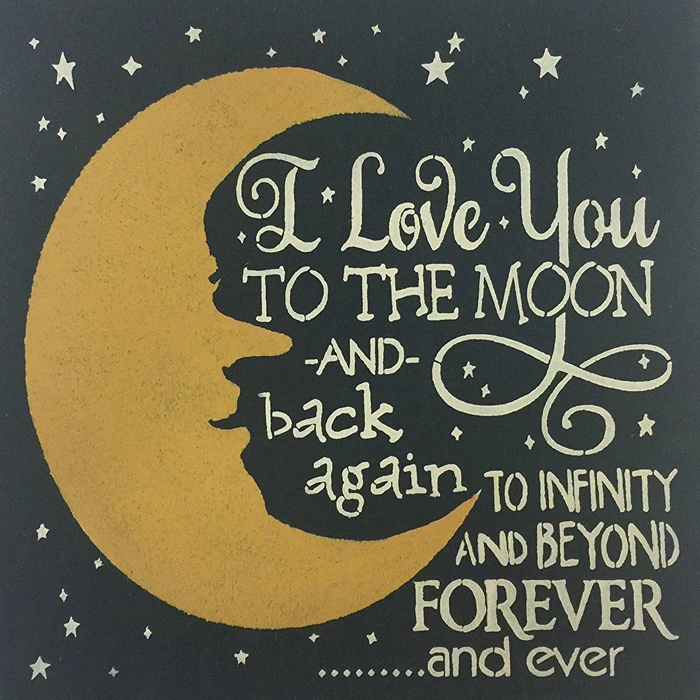 I Love You
TO THE MOON
-AND-
back
again
TO INFINITY
AND BEYOND
FOREVER
.........and ever